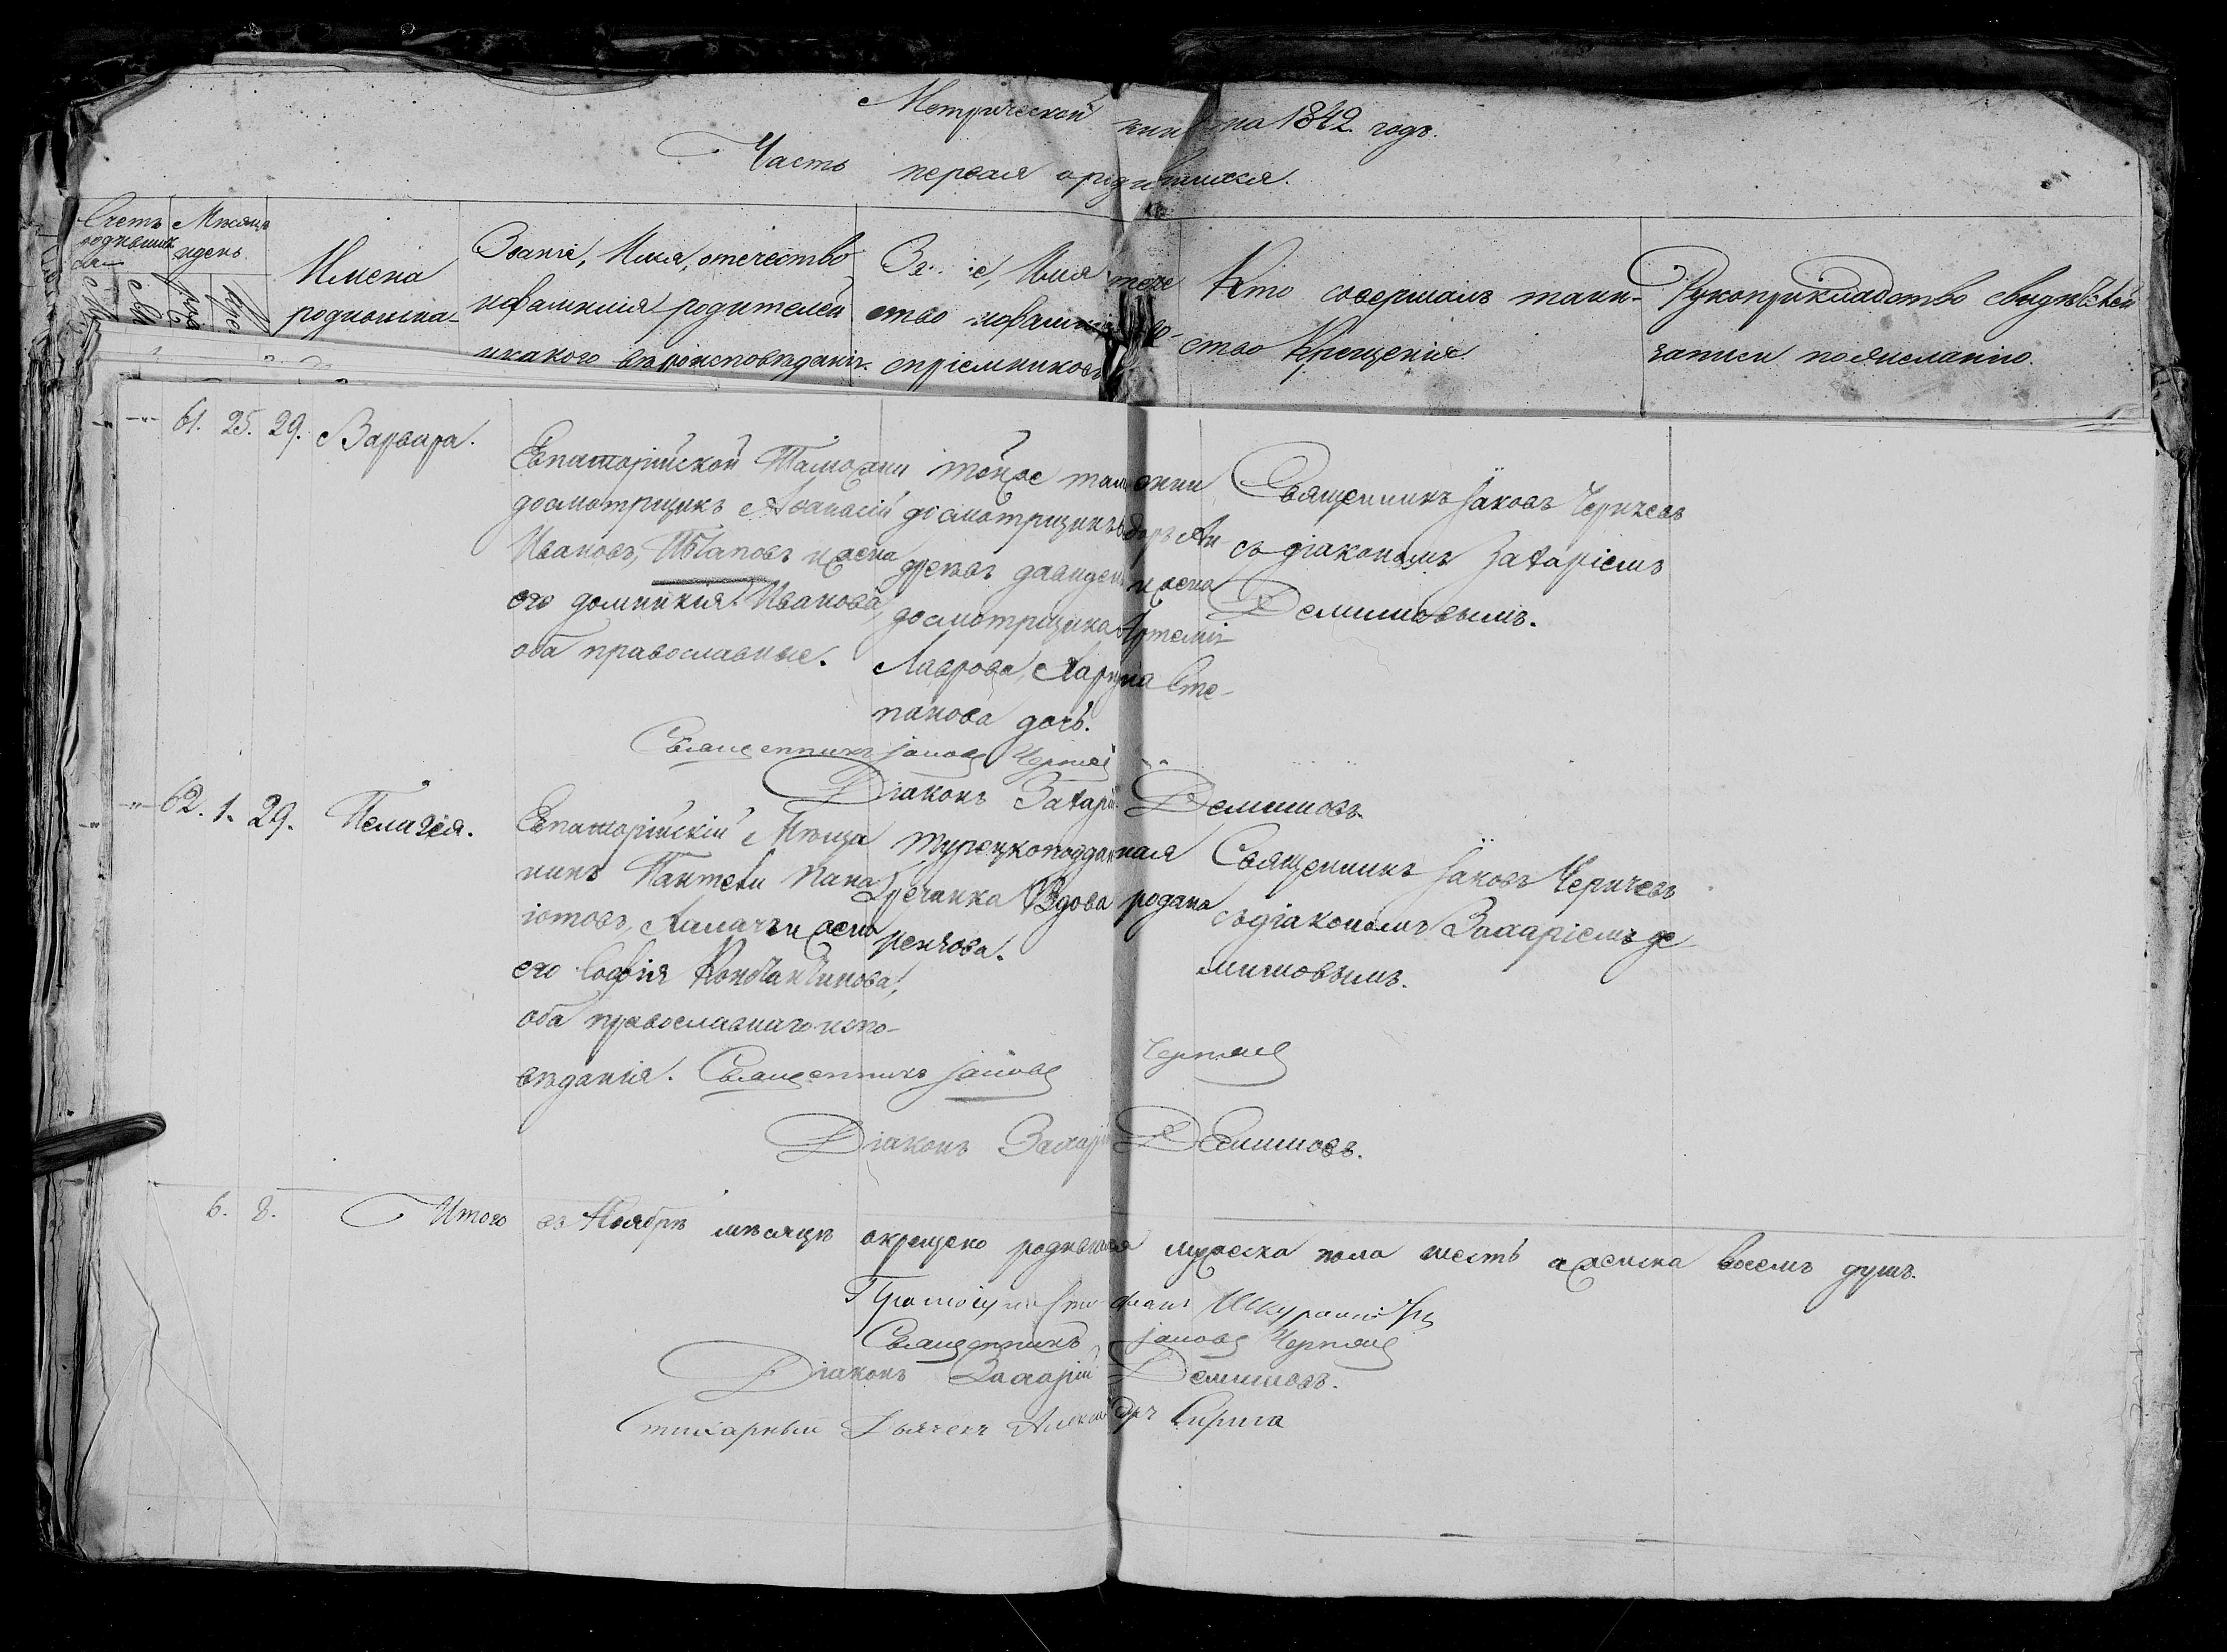 Метрической книги на 1842 годъ.
Часть первая о родившихся.
Счетъ родившихся
Мѣсяцъ и день
Имена родившихся
Званіе, Имя, отечество и фамилія родителей и какого вѣроисповѣданія.
Званіе, Имя отечество и фамилія воспріемниковъ
Кто совершалъ таинство Крещенія.
Рукоприкладство свидѣтелей записи по желанію.
-"- 61. 25. 29. Варвара.
Евпаторійской Таможни
досмотрщикъ Аѳанасій
Ивановъ, и жена
его домникія Иванова,
оба православные.
тойже таможни
досмотрщикъ Ан-
дреевъ и жена
досмотрщика Артемія
Лаврова, Марина Сте-
панова дочь.
Священникъ Іаковъ Черичевъ
съ діакономъ Захаріемъ
Демишовымъ.
Священникъ Іаковъ
Діаконъ Захарій Демишовъ.
-"- 62. 1. 29. Пелагія.
Евпаторійскій Мѣща
нинъ Пантели Пана
іотовъ, и жена
его Софія Константинова,
оба православнаго испо-
вѣданія.
турецкоподданная
Гречанка Вдова родана
Священникъ Іаковъ Черичевъ
съ діакономъ Захаріемъ де
мишовымъ.
Священникъ Іаковъ
Діаконъ Захарій Демишовъ.
6. 8. Итого въ Ноябрѣ мѣсяцѣ окрещено родившихся мужеска пола шесть а женска восемъ душъ.
Священникъ Іаковъ
Діаконъ Захарій Демишовъ.
Стихарный Дьячекъ Александръ